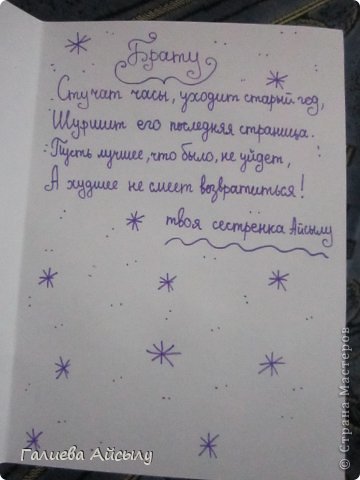 Брату
Стучат часы, уходит старый год,
Шуршит его последняя страница.
Пусть лучшее, что было, не уйдет,
А худшее не смеет возвратиться!
твоя сестренка Айсылу
Галиева Айсылу
© Страна Мастеров